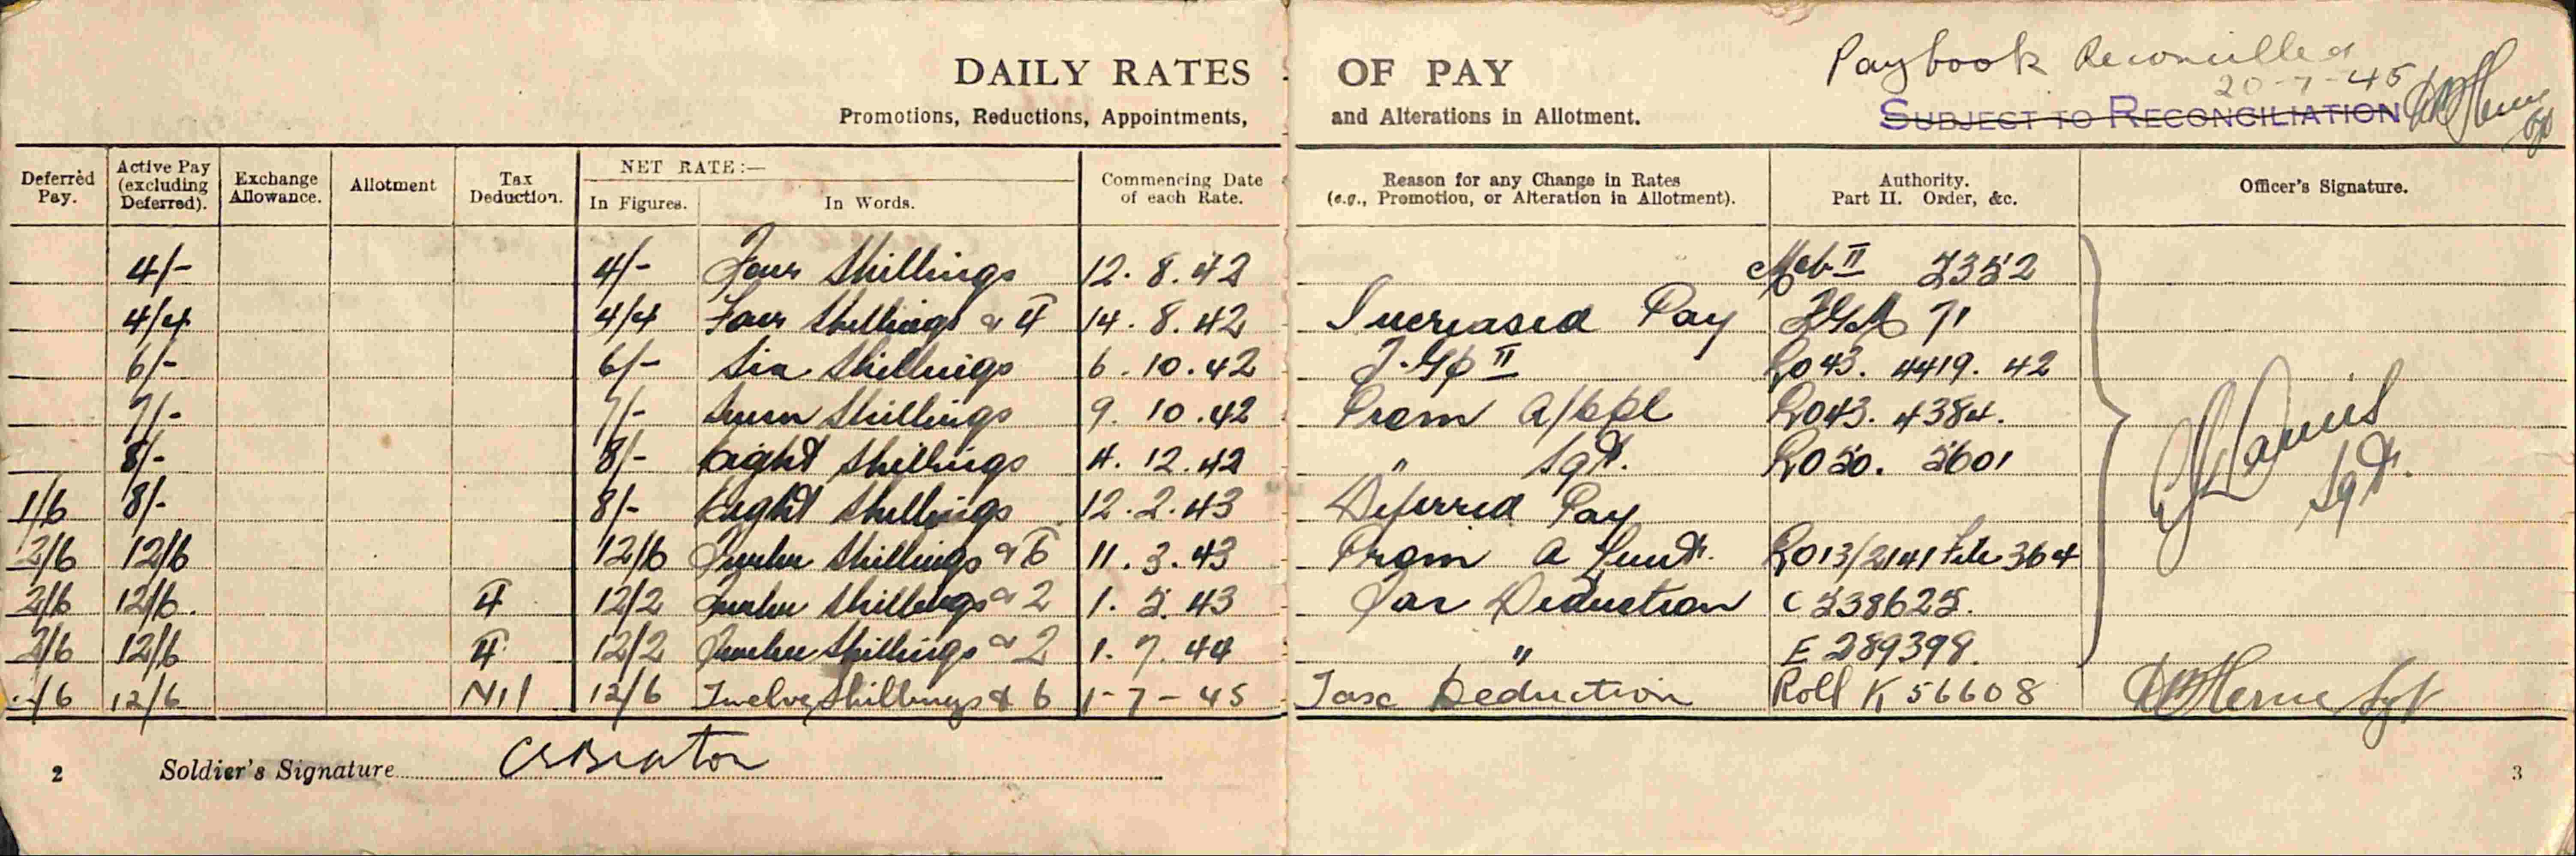 DAILY RATES OF PAY
Paybook Reconcilled
20-7-45
Promotions, Reductions, Appointments, and Alterations in Allotment.
SUBJECT TO RECONCILIATION
Deferred Pay. Active Pay (excluding Deferred). Exchange Allowance. Allotment Tax Deduction. NET RATE:— In Figures. In Words. Commencing Date of each Rate. Reason for any Change in Rates (e.g., Promotion, or Alteration in Allotment). Authority. Part II. Order, &c. Officer's Signature.
4/- 4/- Four Shillings 12. 8. 42 II 5352
4/4 4/4 Four Shillings & 4 14. 8. 42 Increased Pay 71
6/- 6/- Six Shillings 6. 10. 42 II RO 43. 4419. 42
7/- 7/- Seven Shillings 9. 10. 42 Prom A/Cpl RO43. 4384.
8/- 8/- Eight Shillings 4. 12. 42 " Sgt. RO 50. 5601
1/6 8/- 8/- Eight Shillings 12. 2. 43 Deferred Pay
2/6 12/6 12/6 Twelve Shillings & 6 11. 3. 43 Prom A Lieut. RO13/2141 File 364
2/6 12/6. 4 12/2 Twelve Shillings & 2 1. 5. 43 Tax Deduction C 538625.
2/6 12/6 4 12/2 Twelve Shillings & 2 1. 7. 44 " E 289399.
/6 12/6 Nil 12/6 Twelve Shillings & 6 1-7-45 Tax Deduction Roll K 56608
Davies Sgt.
Herne Sgt
2 Soldier's Signature 3